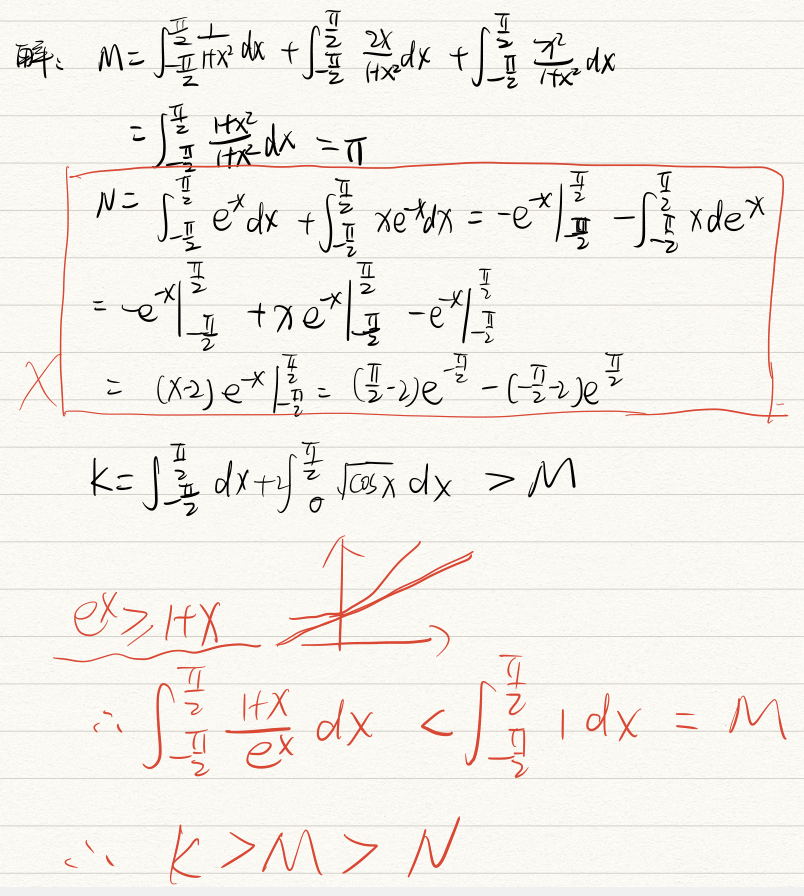 解: M = ∫_{-π/2}^{π/2} 1/(1+x²) dx + ∫_{-π/2}^{π/2} 2x/(1+x²) dx + ∫_{-π/2}^{π/2} x²/(1+x²) dx
= ∫_{-π/2}^{π/2} (1+x²)/(1+x²) dx = π
N = ∫_{-π/2}^{π/2} e^{-x} dx + ∫_{-π/2}^{π/2} xe^{-x} dx = -e^{-x}|_{-π/2}^{π/2} - ∫_{-π/2}^{π/2} x de^{-x}
= -e^{-x}|_{-π/2}^{π/2} + xe^{-x}|_{-π/2}^{π/2} - e^{-x}|_{-π/2}^{π/2}
X = (x-2)e^{-x}|_{-π/2}^{π/2} = (π/2-2)e^{-π/2} - (-π/2-2)e^{π/2}
K = ∫_{-π/2}^{π/2} dx + 2∫_{0}^{π/2} √cosx dx > M
e^x ≥ 1+x
∴ ∫_{-π/2}^{π/2} (1+x)/e^x dx < ∫_{-π/2}^{π/2} 1 dx = M
∴ K > M > N